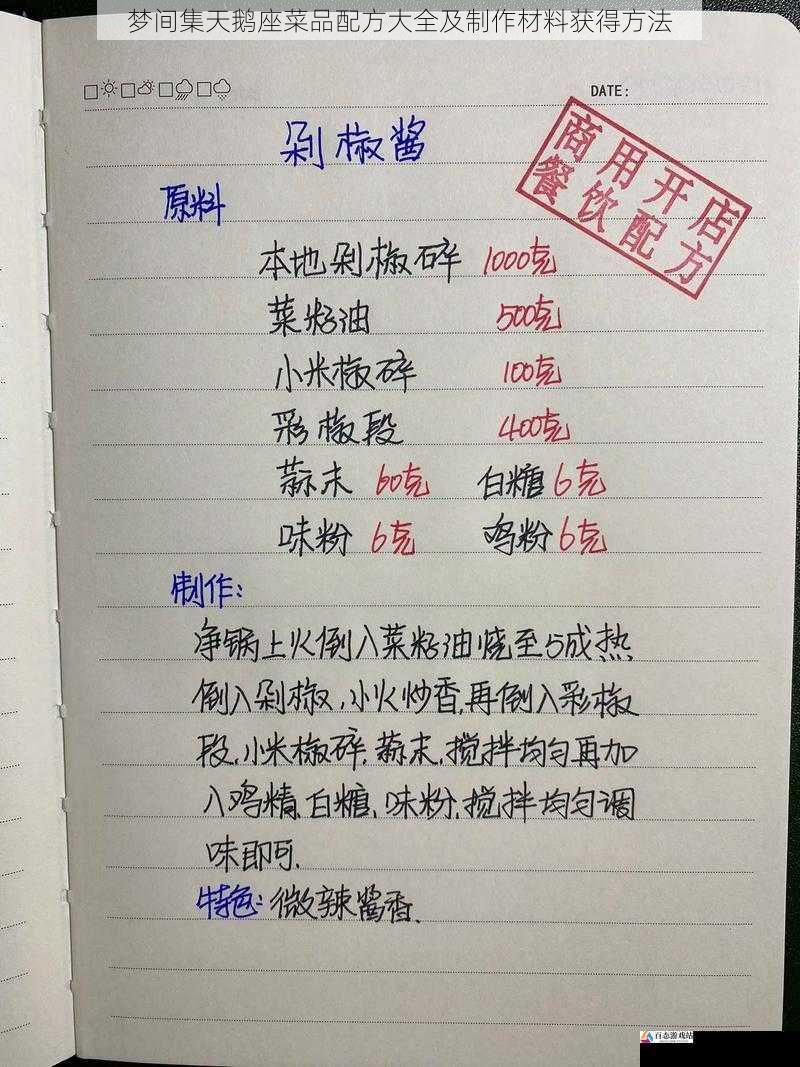 梦间集天鹅座菜品配方大全及制作材料获得方法
DATE:
剁椒酱
商用开店
餐饮配方
原料
本地剁椒碎 1000克
菜籽油 500克
小米椒碎 100克
彩椒段 400克
蒜末 60克 白糖 6克
味粉 6克 鸡粉 6克
制作:
净锅上火倒入菜籽油烧至5成热
倒入剁椒,小火炒香,再倒入彩椒
段,小米椒碎,蒜末,搅拌均匀再加
入鸡精,白糖,味粉,搅拌均匀调
味即可.
特色:微辣酱香.
百态游戏站